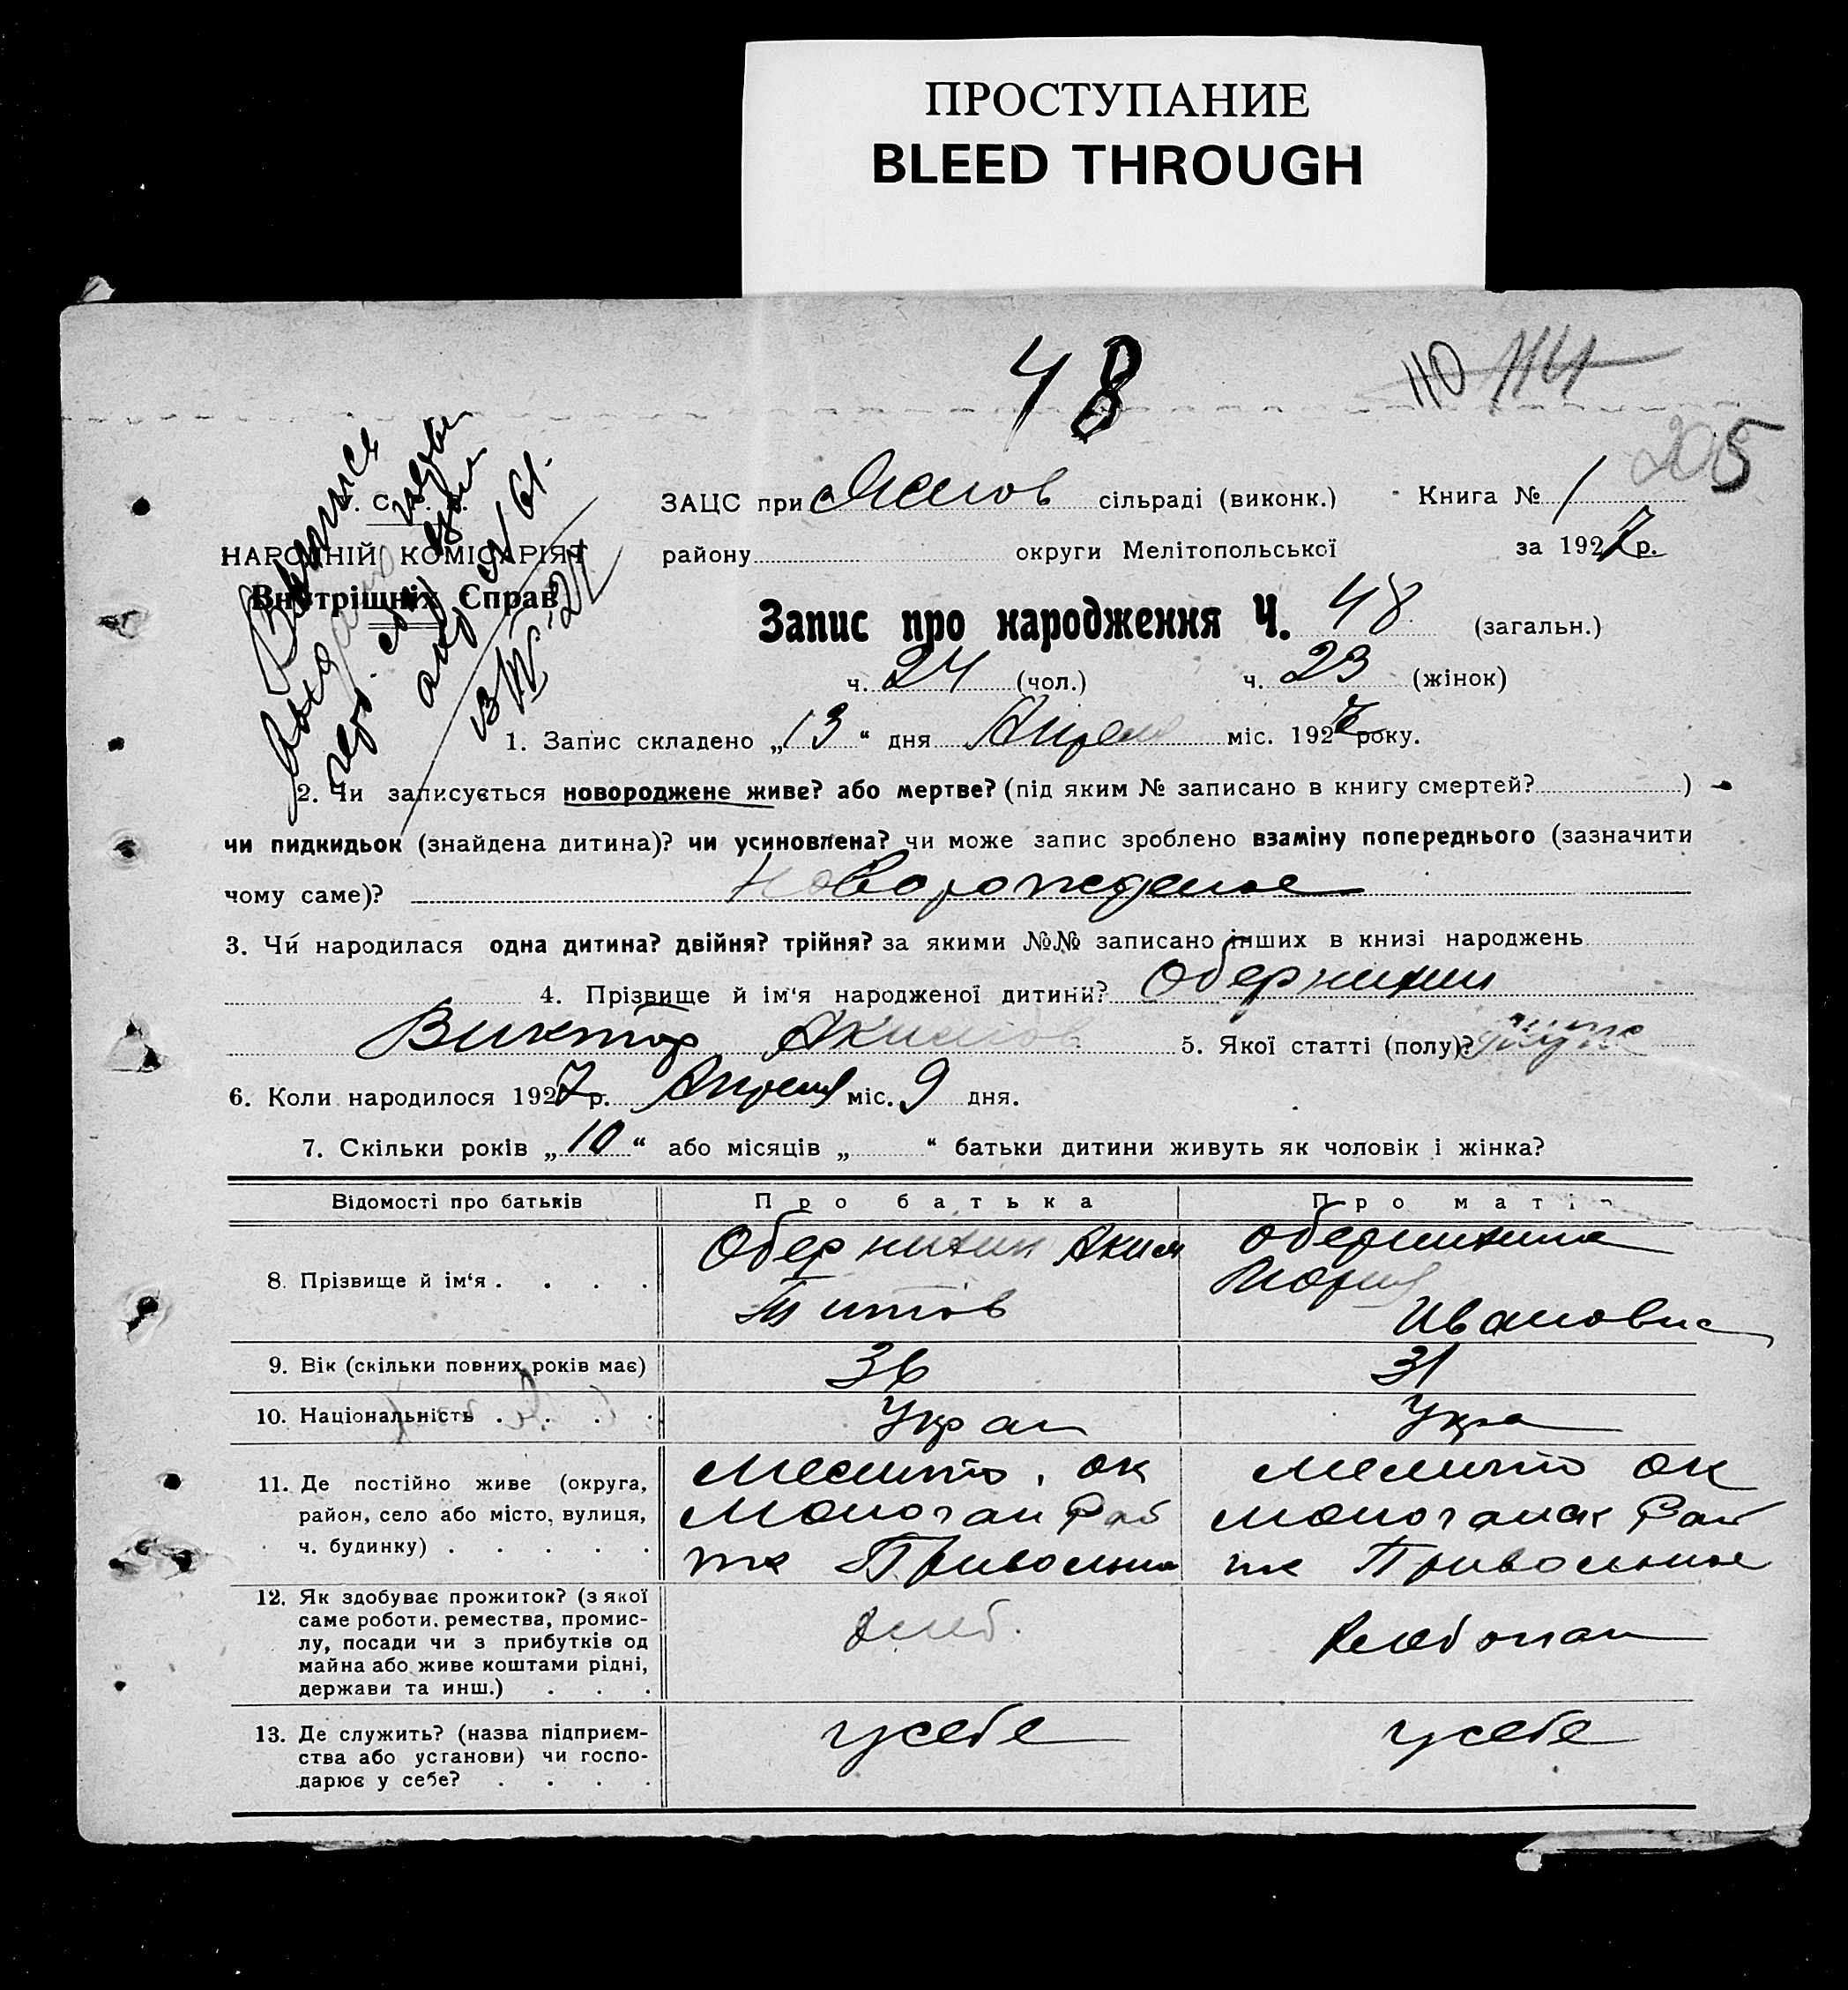 ПРОСТУПАНИЕ
BLEED THROUGH
48
110 114
205
НАРОДНІЙ КОМІСАРІЯТ
Внутрішніх Справ
ЗАЦС при сільраді (виконк.) Книга № 1
району округи Мелітопольської за 1927 р.
Запис про народження Ч. 48 (загальн.)
ч. 24 (чол.) ч. 23 (жінок)
1. Запис складено „13“ дня Апреля міс. 1927 року.
2. Чи записується новороджене живе? або мертве? (під яким № записано в книгу смертей? )
чи пидкидьок (знайдена дитина)? чи усиновлена? чи може запис зроблено взаміну попереднього (зазначити
чому саме)? Новорожденые
3. Чи народилася одна дитина? двійня? трійня? за якими №№ записано інших в книзі народжень
4. Прізвище й ім‘я народженої дитини? Обернихин
Виктор Акимов 5. Якої статті (полу)? муж
6. Коли народилося 1927 р. Апреля міс. 9 дня.
7. Скільки років „10“ або місяців „ “ батьки дитини живуть як чоловік і жінка?
Відомості про батьків Про батька Про матір
8. Прізвище й ім‘я . . . . Обернихин Аким Титов Обернихина Мария Ивановна
9. Вік (скільки повних років має) 36 31
10. Національність . . . . Украи Укра
11. Де постійно живе (округа, Мелито. ок Мелито ок
район, село або місто, вулиця, Моло Рай Рай
ч. будинку) . . . . . Привольна Привольные
12. Як здобуває прожиток? (з якої
саме роботи, ремества, промис-
лу, посади чи з прибутків од Хлеб. Хлебопаш
майна або живе коштами рідні,
держави та инш.) . . .
13. Де служить? (назва підприєм- у себе у себе
ства або установи) чи госпо-
дарює у себе? . . . .